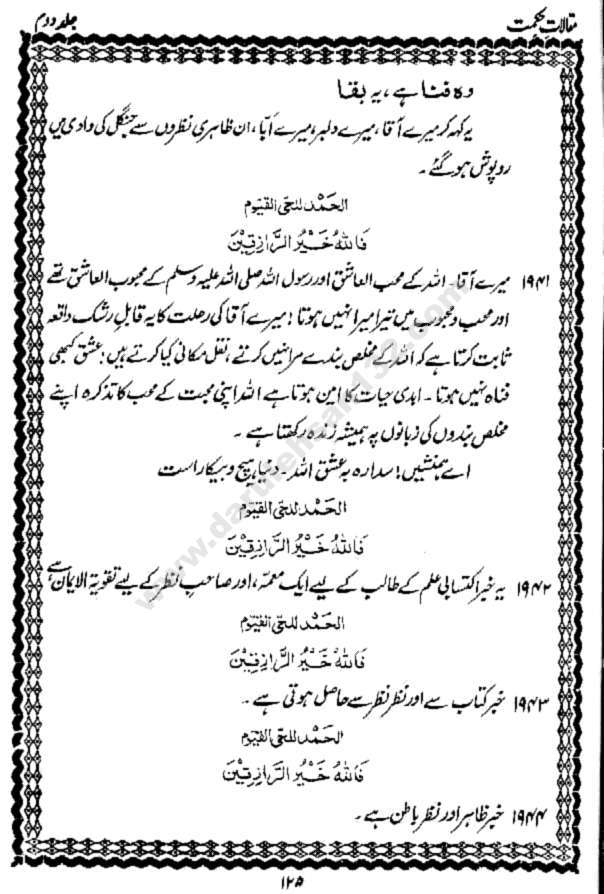 مقالاتِ حکمت
جلد دوم
وہ فنا ہے، یہ بقا
یہ کہہ کر میرے آقا، میرے دلبر، میرے اَبّا، ان ظاہری نظروں سے جنگل کی وادی میں
روپوش ہو گئے ۔
الحمْد للحی القیّوم
فَاللهُ خَیْرُ الرَّازِقِیْنَ
۱۹۴۱ میرے آقا ۔ اللہ کے محب العاشق اور رسول اللہ صلی اللہ علیہ وسلم کے محبوب العاشق تھے
اور محب و محبوب میں تیرا میرا نہیں ہوتا! میرے آقا کی رحلت کا یہ قابلِ رشک واقعہ
ثابت کرتا ہے کہ اللہ کے مخلص بندے مرا نہیں کرتے، نقل مکانی کیا کرتے ہیں! عشق کبھی
فناہ نہیں ہوتا ۔ ابدی حیات کا امین ہوتا ہے اللہ اپنی محبت کے محب کا تذکرہ اپنے
مخلص بندوں کی زبانوں پہ ہمیشہ زندہ رکھتا ہے ۔
اے ہمنشیں! سدارہ بہ عشق اللہ ۔ دنیا ہیچ و بیکار است
الحمْد للحی القیّوم
فَاللهُ خَیْرُ الرَّازِقِیْنَ
۱۹۴۲ یہ خبر اکتسابی علم کے طالب کے لیے ایک معمّہ، اور صاحبِ نظر کے لیے تقویۃ الایمان ہے
الحمْد للحی القیّوم
فَاللهُ خَیْرُ الرَّازِقِیْنَ
۱۹۴۳ خبر کتاب سے اور نظر نظر سے حاصل ہوتی ہے ۔
الحمْد للحی القیّوم
فَاللهُ خَیْرُ الرَّازِقِیْنَ
۱۹۴۴ خبر ظاہر اور نظر باطن ہے ۔
۱۲۵